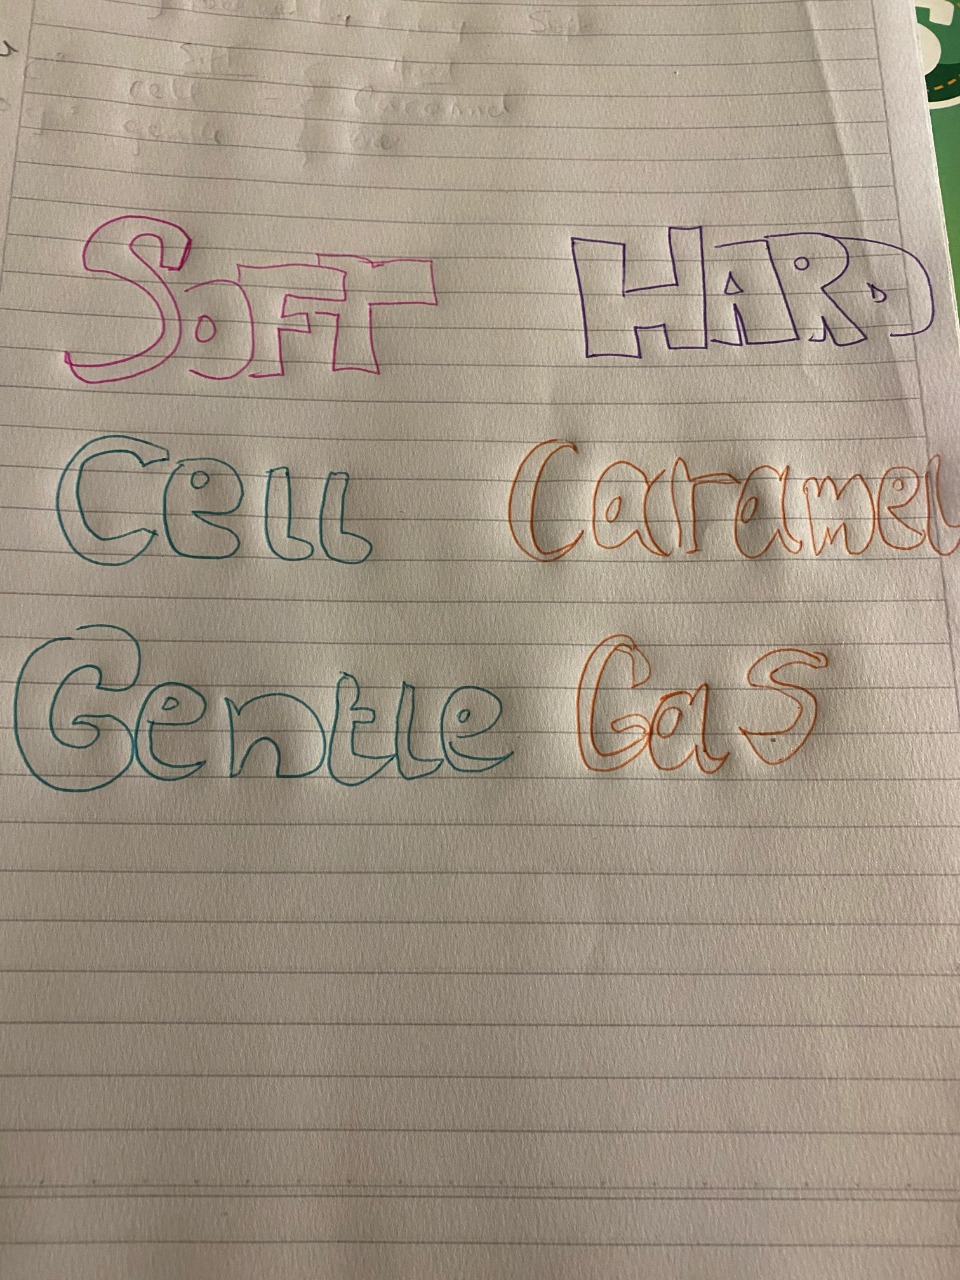 SOFT HARD
Cell Caramel
Gentle Gas